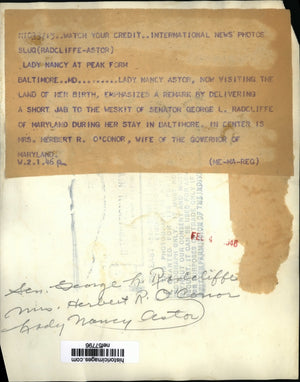 WATCH YOUR CREDIT..INTERNATIONAL NEWS PHOTOS
SLUG(RADCLIFFE-ASTOR)
LADY NANCY AT PEAK FORM
BALTIMORE..MD.....LADY NANCY ASTOR, NOW VISITING THE
LAND OF HER BIRTH, EMPHASIZES A REMARK BY DELIVERING
A SHORT JAB TO THE WESKIT OF SENATOR GEORGE L. RADCLIFFE
OF MARYLAND DURING HER STAY IN BALTIMORE. IN CENTER IS
MRS. HERBERT R. O'CONOR, WIFE OF THE GOVERNOR OF
MARYLAND.
W.2.1.46 (ME-MA-REG)
Sen. George L. Radcliffe
Mrs. Herbert R. O'Conor
Lady Nancy Astor
historicimages.com
nef57796